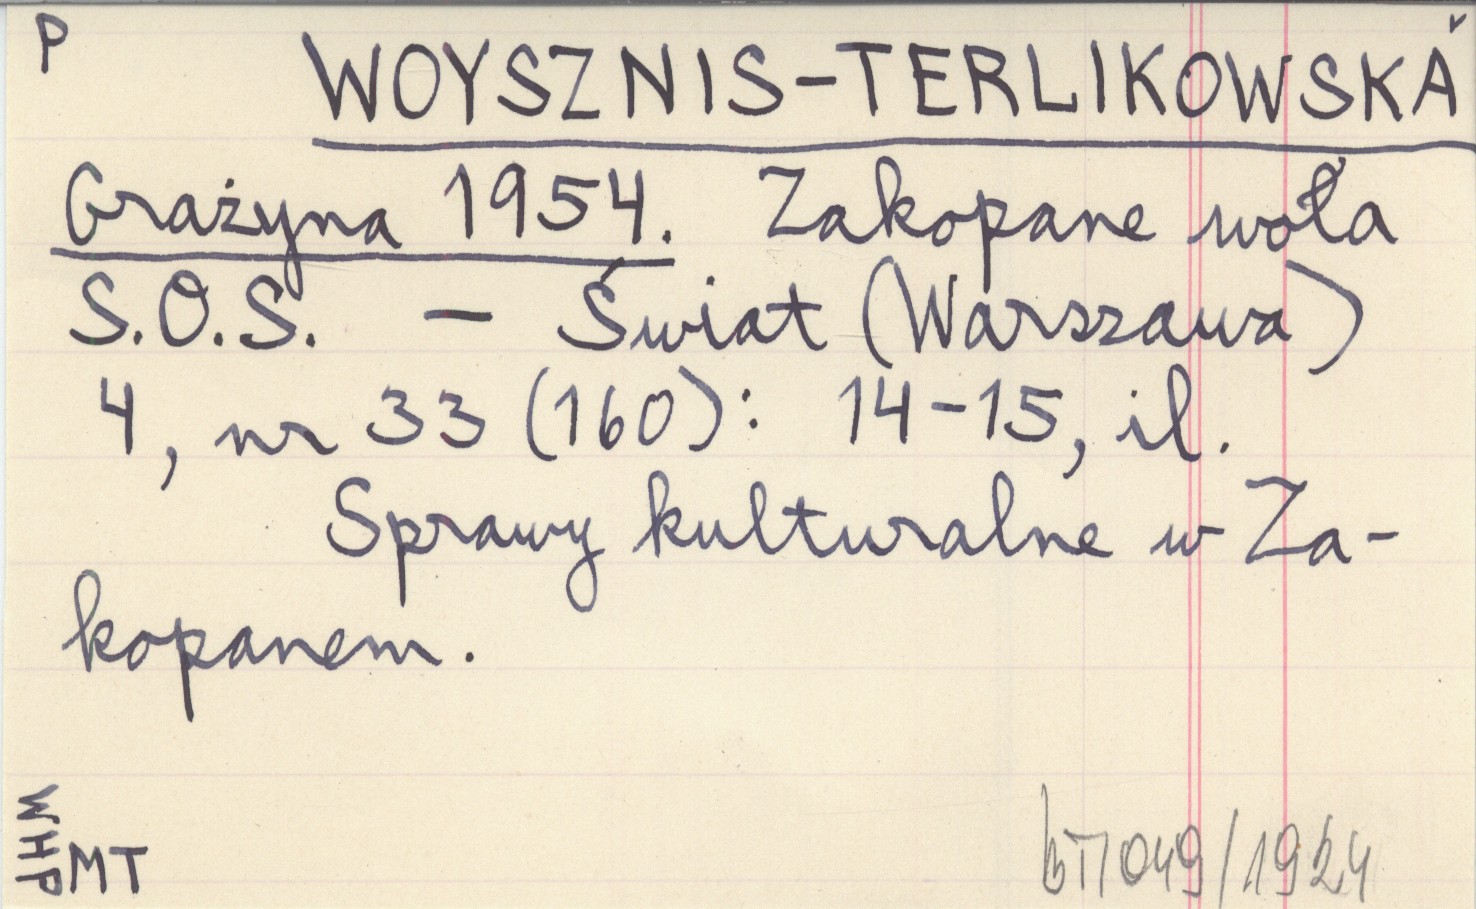 P
WOYSZNIS-TERLIKOWSKA
Grażyna 1954. Zakopane woła
S.O.S. – Świat (Warszawa)
4, nr 33 (160): 14-15, il.
Sprawy kulturalne w Za-
kopanem.
WHP
MT
049/1924